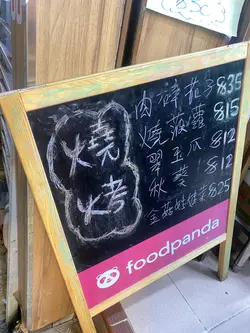 燒烤
肉碎茄子 $35
燒菠蘿 $15
翠玉瓜 $12
秋葵 $12
金菇娃娃菜 $25
foodpanda